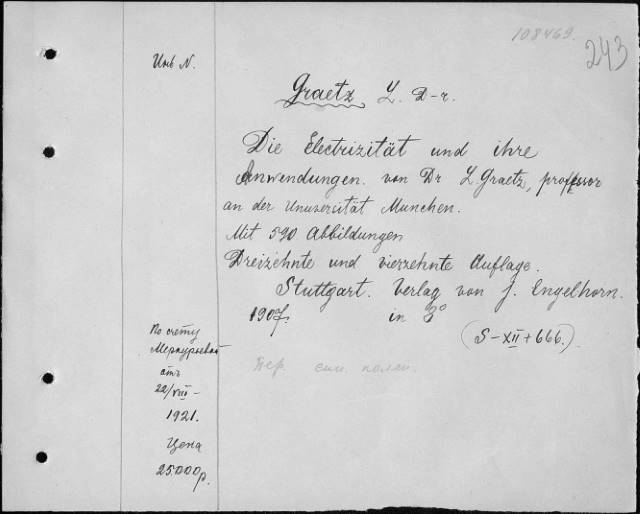 108469.
243
Инв N.
Graetz L. D-r.
Die Electrizität und ihre
Anwendungen. von Dr L. Graetz, professor
an der Universität Munchen.
Mit 590 Abbildungen
Dreizehnte und vierzehnte Auflage.
Stuttgart. Verlag von J. Engelhorn.
1907. in 8°
(S-XII+666.)
Пер. син. колен.
По счету
Меркурьевой
отъ
22/VIII-
1921.
Цена
25000р.